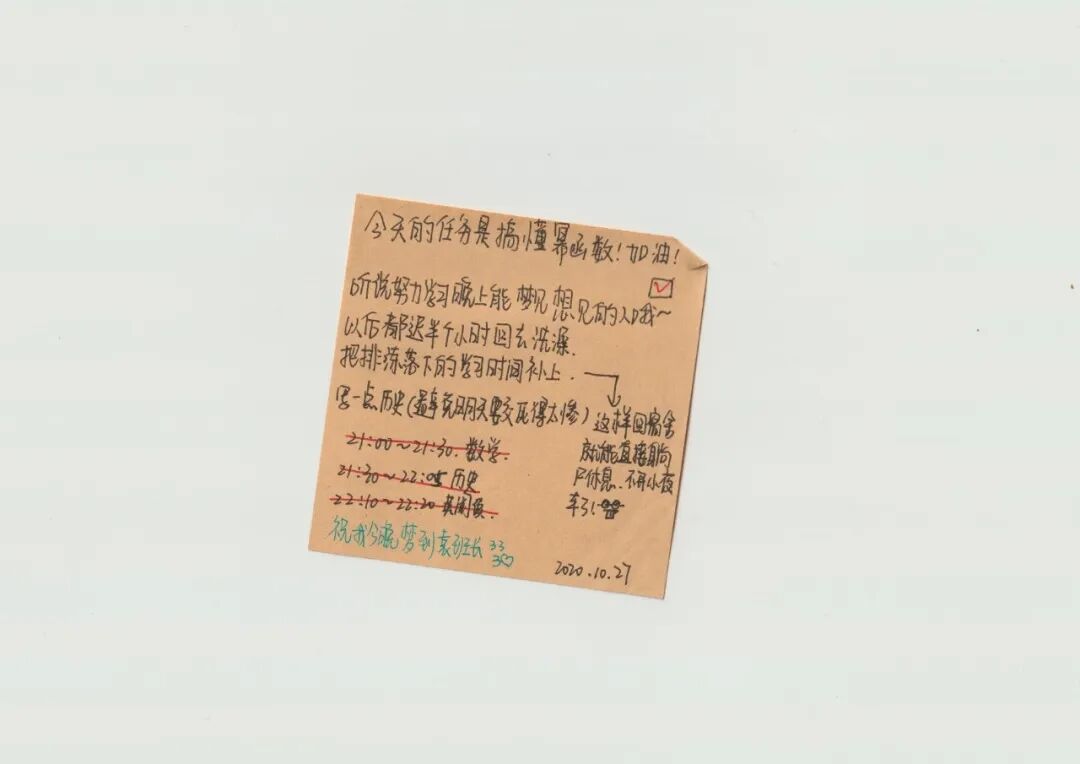 今天的任务是搞懂幂函数！加油！
听说努力学习晚上能梦见想见的人哦～
以后都迟半个小时回去洗澡.
把排练落下的学习时间补上.
背一点历史(避免明天要交死得太惨)
这样回宿舍
就能直接
休息..不开小夜
车引
21:00～21:30.数学.
21:30～22:05历史
22:10～22:20英阅读.
祝我今晚梦到袁班长
2020.10.27